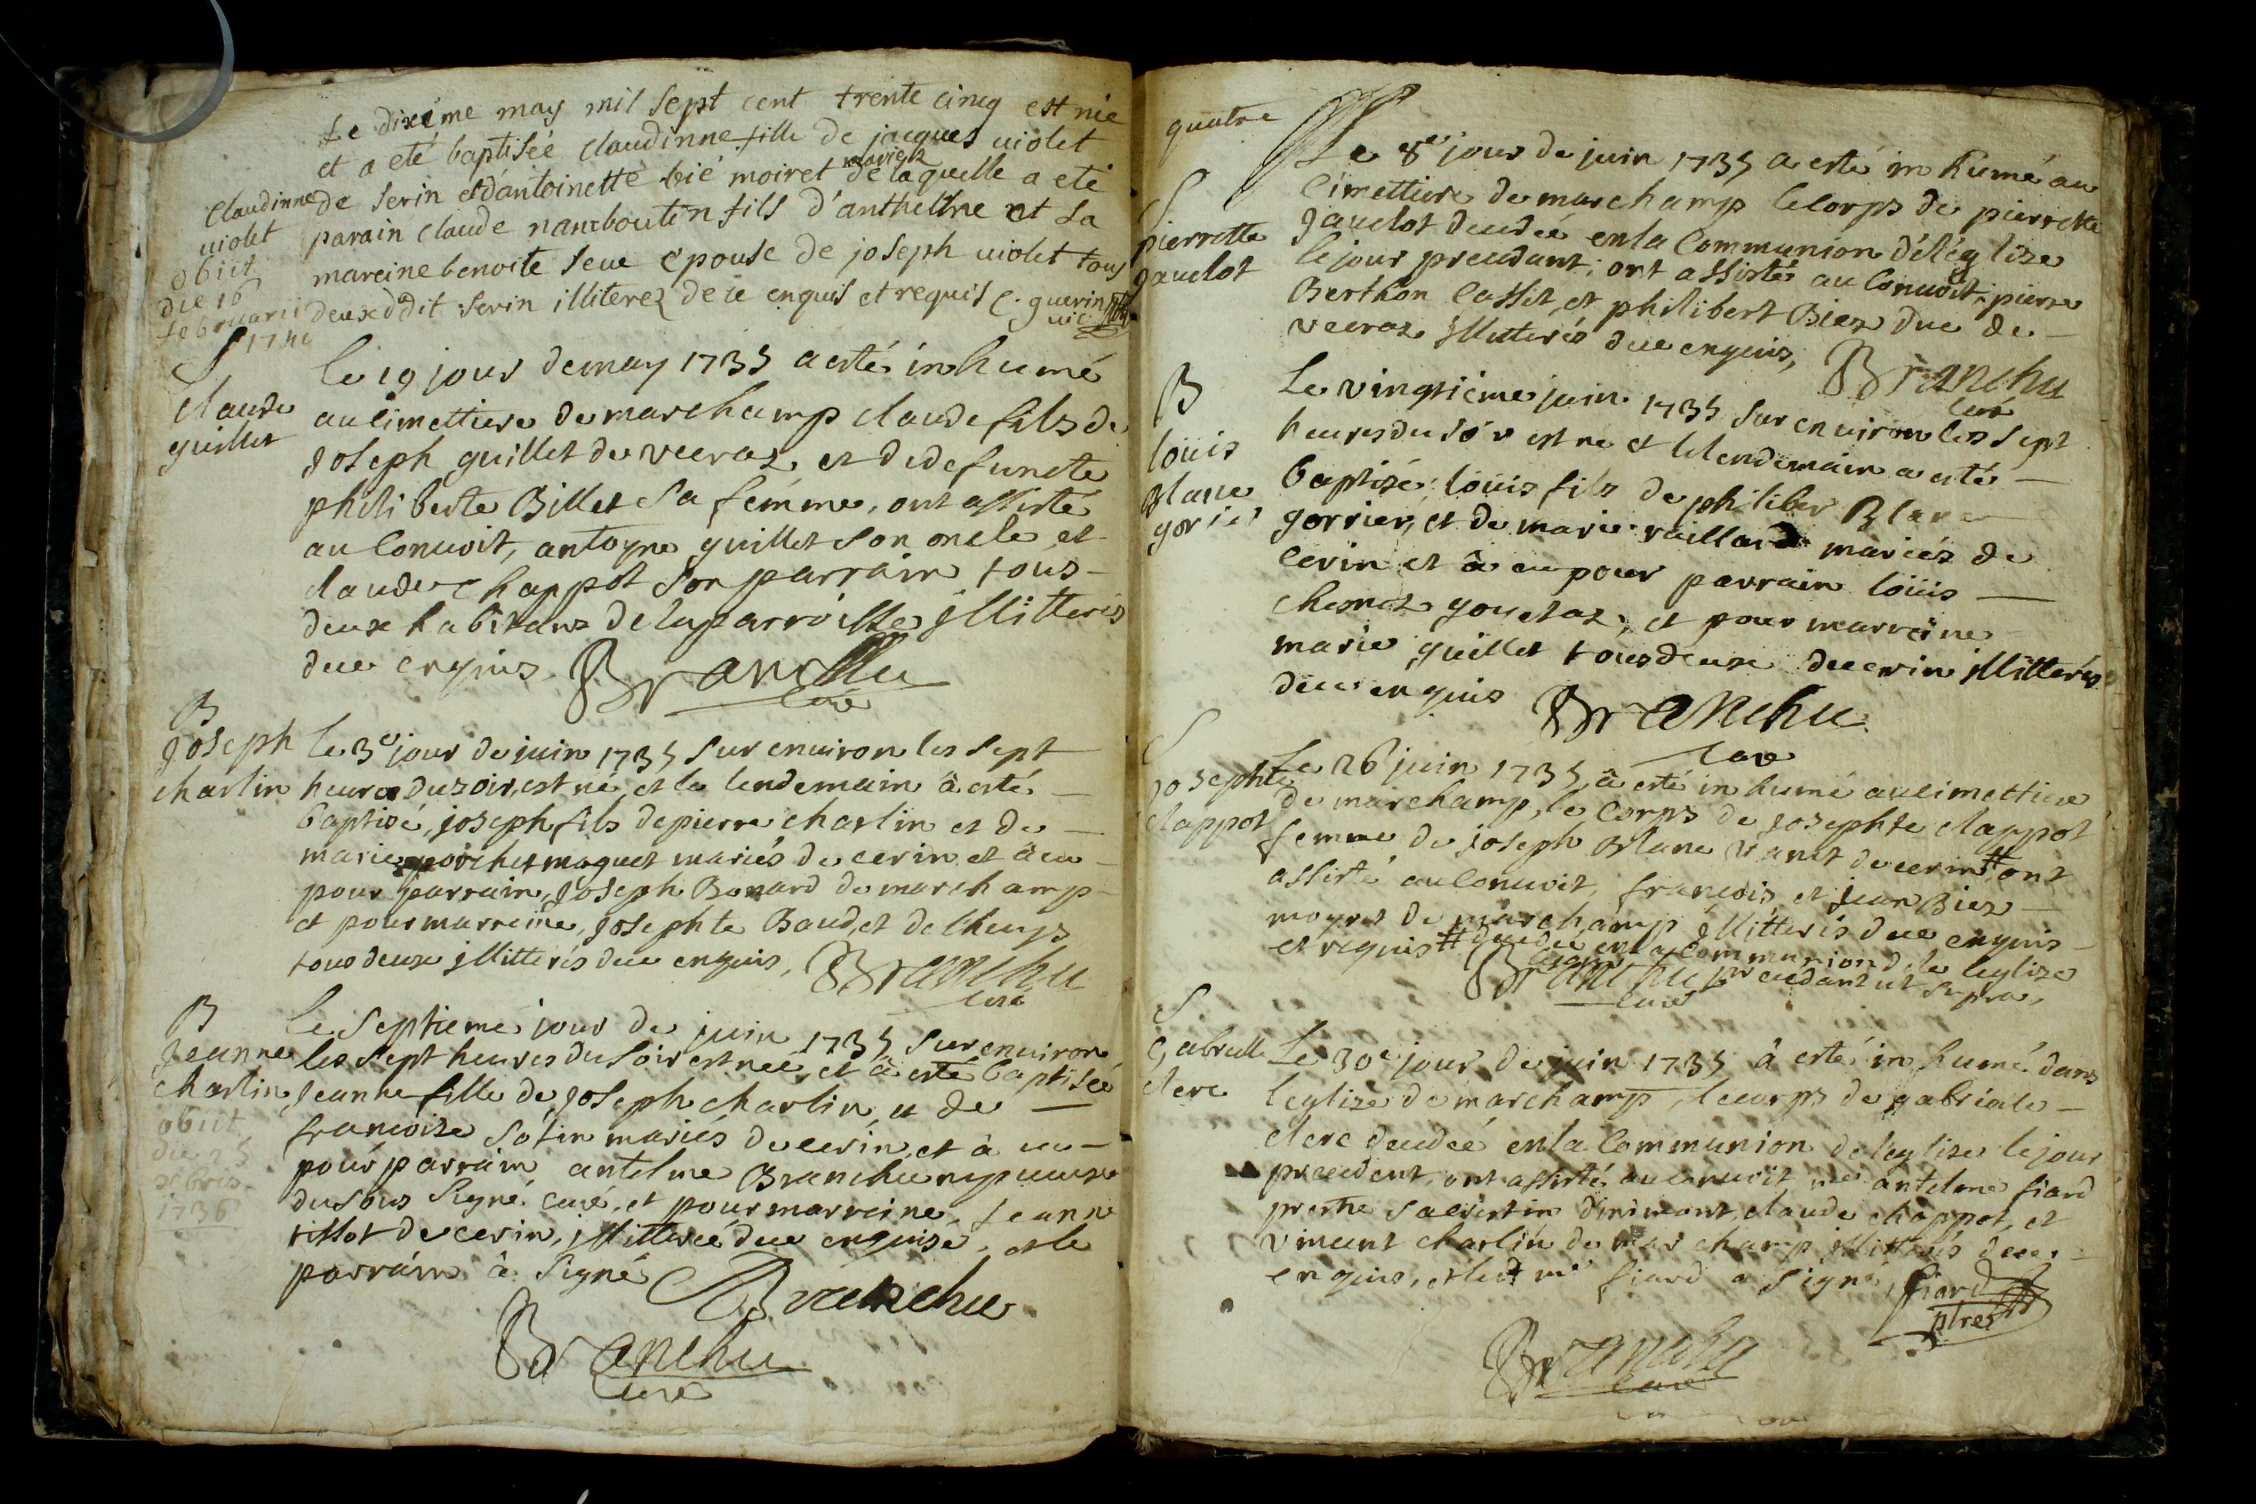 Le dixiéme may mil sept cent trente cinq est née
et a eté baptisée claudinne fille de jacques violet
de serin et d'antoinette bié moiret mariez de laquelle a eté
parain claude namboutin fils d'anthelme et la
mareine benoite seve epouse de joseph violet tous
deux dudit serin illiterez de ce enquis et requis C. guerin
vic.
claudinne
violet
obiit
die 16
februarii
1740
S
claude
guillet
le 19 jour de may 1735 a esté inhumé
au cimettiere de marchamp claude fils de
Joseph guillet de veeraz et de defuncte
philiberte Billet sa femme, ont assisté
au Convoit, antoyne guillet son oncle et
claude chappot son parrain tous
deux habitans de la parroisse jllitteris
dece enquis Branchu
curé
B
Joseph
charlin
le 3e jour de juin 1735 sur environ les sept
heures du soir, est né, et le lendemain à esté
baptisé, joseph fils de pierre charlin et de
marie porchet moquet mariés de cerin et à eu
pour parrain, Joseph Bonard de marchamp
et pour marreine, Josephte Baudet de cheuys
tous deux jllitteris dece enquis, Branchu
curé
B
Jeanne
charlin
obiit
die 25
xbris
1736
Le septieme jour de juin 1735 sur environ
les sept heures du soir est née, et à esté baptisée
Jeanne fille de Joseph charlin, et de
francoize sotin mariés de cerin, et à eu
pour parrain antelme Branchu nepveux
du sous signé curé, et pour marreine, Jeanne
tillot de cerin, jllitterée dece enquise, et le
parrain à signé Branchu
Branchu
curé
quatre
S
pierrette
gauelot
Le 8e jour de juin 1735 a esté inhumé au
Cimettiere de marchamp le corps de pierrette
gauelot decedée en la Communion de léglize
le jour precedant; ont assisté au Convoit, pierre
Berthon Cassit, et philibert Biez duc de
veeraz jllitteris dece enquis, Branchu
curé
B
loüis
Blanc
gorrier
Le vingtiéme juin 1735 sur environ les sept
heures du soir est né et le lendemain a esté
baptizé; loüis fils de philiber Blanc
gorrier, et de marie raillard mariéz de
cerin et à eu pour parrain loüis
chesnez gouelaz, et pour marreine
marie guillet tous deux de cerin jllitteris
dece enquis Branchu
curé
S
Josephte
clappot
Le 26 juin 1735, à esté inhumé au cimettiere
de marchamp, le Corps de Josephte clappot
femme de joseph Blanc vanet de cerin # ont
assisté au Convoit, francois et jean Biez
moyret de marchamp jllitteris dece enquis
et requis # decedée en la Communion de leglize
le jour precedant ut supra,
Branchu
curé
S.
Gabrielle
clerc
Le 30e jour de juin 1735 à esté inhumé dans
leglize de marchamp, le corps de gabriele
clerc decedée en la Communion de leglize le jour
precedent, ont assisté au convoit mre antelme fiard
prestre sacristin d'inimont, claude chappot, et
vincent charlin de marchamp jllitteris dece
enquis, et led mre fiard a signé, fiard
ptre
Branchu
curé